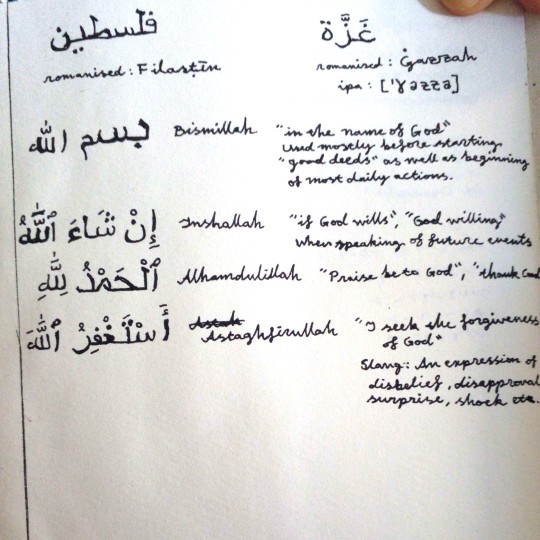 فلسطين
romanised: Filasṭīn
غَزَّة
romanised: Ġazzah
ipa: ['ɣəzzə]
بسم الله Bismillah "in the name of God"
used mostly before starting
"good deeds" as well as beginning
of most daily actions.
إِنْ شَاءَ ٱللَّٰهُ Inshallah "if God wills", "God willing"
when speaking of future events
ٱلْحَمْدُ لِلَّٰهِ Alhamdulillah "Praise be to God", "thank God
أَسْتَغْفِرُ ٱللَّٰهَ Astaghfirullah "I seek the forgiveness
of God"
Slang: An expression of
disbelief, disapproval
surprise, shock etc.